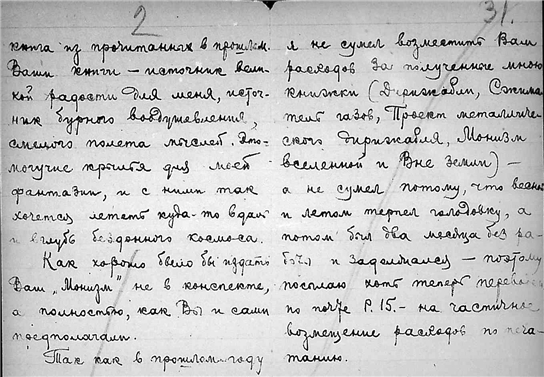 2
книга из прочитанных в прошлом.
Ваши книги — источник вели-
кой радости для меня, источ-
ник бурного воодушевления,
смелого полета мыслей. Это
могучие крылья для моей
фантазии, и с ними так
хочется лететь куда-то вдаль
и вглубь бездонного космоса.
Как хорошо было бы издать
Ваш „Монизм" не в конспекте,
а полностью, как Вы и сами
предполагали.
Так как в прошлом году
31.
я не сумел возместить Вам
расходов за полученные мною
книжки (Дирижабли, Сжима
тель газов, Проект металличе-
ского дирижабля, Монизм
вселенной и Вне земли) —
а не сумел потому, что весной
и летом терпел голодовку, а
потом был два месяца без ра-
боты и задолжался — поэтому
посылаю хоть теперь переводом
по почте Р. 15.- на частичное
возмещение расходов по печа-
танию.